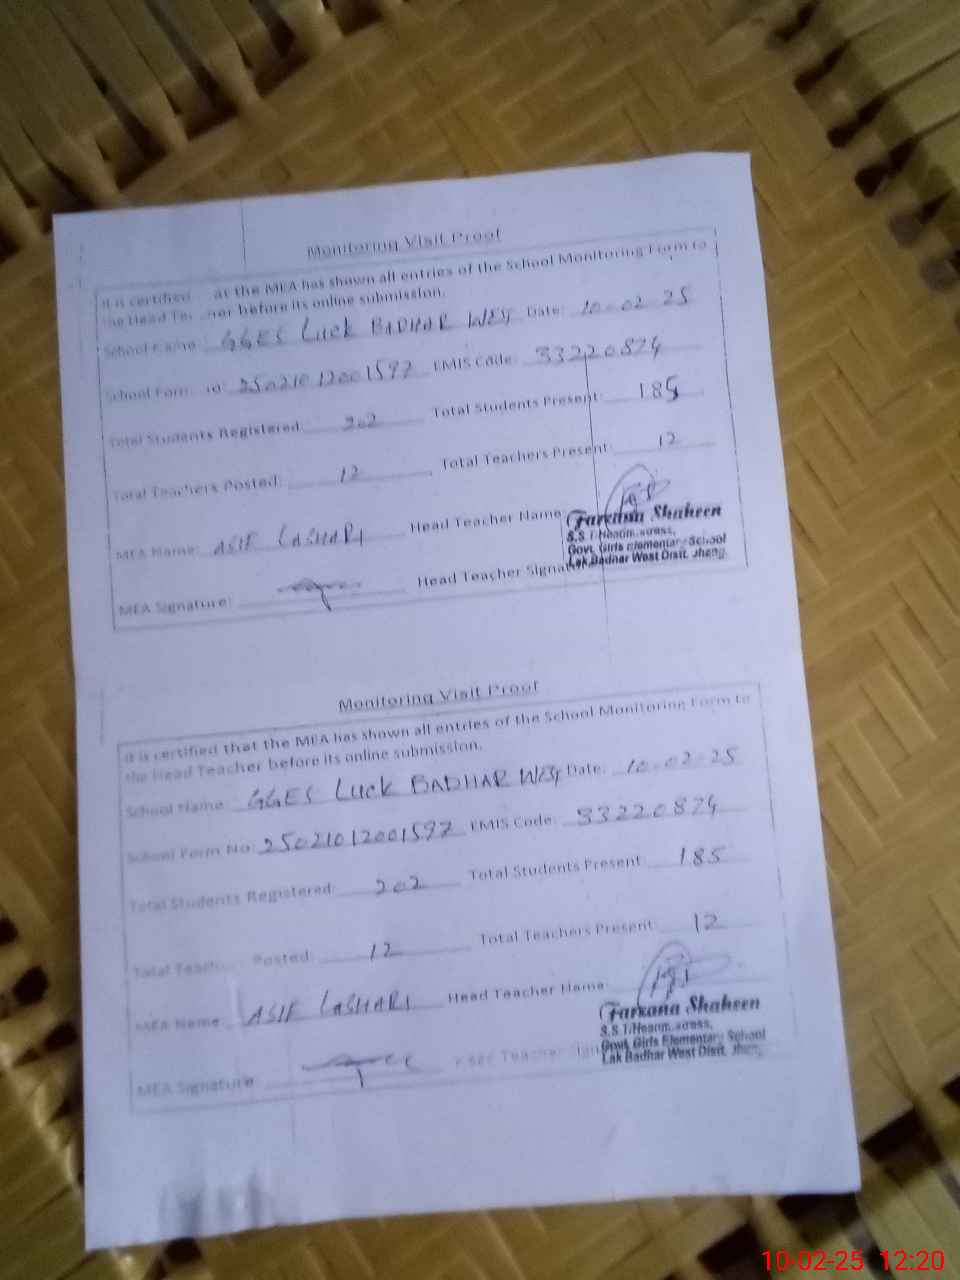 Monitoring Visit Proof
It is certified at the MEA has shown all entries of the School Monitoring Form to
the Head Teacher before its online submission.
School Name: GGES Luck BADHAR WEST Date: 10-02-25
School Form No: 25021012001597 EMIS Code: 33220874
Total Students Registered: 202 Total Students Present: 185
Total Teachers Posted: 12 Total Teachers Present: 12
MEA Name: ASIF LASHARI Head Teacher Name
Farzana Shaheen
S.S.T/Headmistress,
Govt. Girls Elementary School
Lak Badhar West Distt. Jhang.
MEA Signature: Head Teacher Signat
Monitoring Visit Proof
It is certified that the MEA has shown all entries of the School Monitoring Form to
the Head Teacher before its online submission.
School Name: GGES Luck BADHAR WEST Date: 10-02-25
School Form No: 25021012001597 EMIS Code: 33220874
Total Students Registered: 202 Total Students Present: 185
Total Teach Posted: 12 Total Teachers Present: 12
MEA Name: ASIF LASHARI Head Teacher Name:
Farzana Shaheen
S.S.T/Headmistress,
Govt. Girls Elementary School
Lak Badhar West Distt. Jhang.
MEA Signature Teacher Sign
10-02-25 12:20